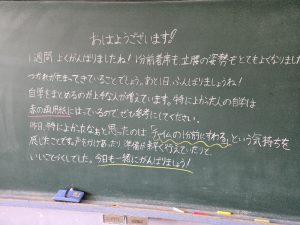 おはようございます!!
1週間 よくがんばりましたね! 1分前着席も 立腰の姿勢もとてもよくなりました
つかれがたまってきていることでしょう。あと1日、ふんばりましょうね!
自学をまとめるのが上手な人が増えています。特によかった人の自学は
赤の画用紙にはっているのでぜひ参考にしてください。
昨日、特によかったなぁと思ったのは「タイムの1分前にすわる」という気持ちを
感じたことです。声をかけあったり、準備が素早く行えていたりと
いいことづくしでした。今日も一緒にがんばりましょう!